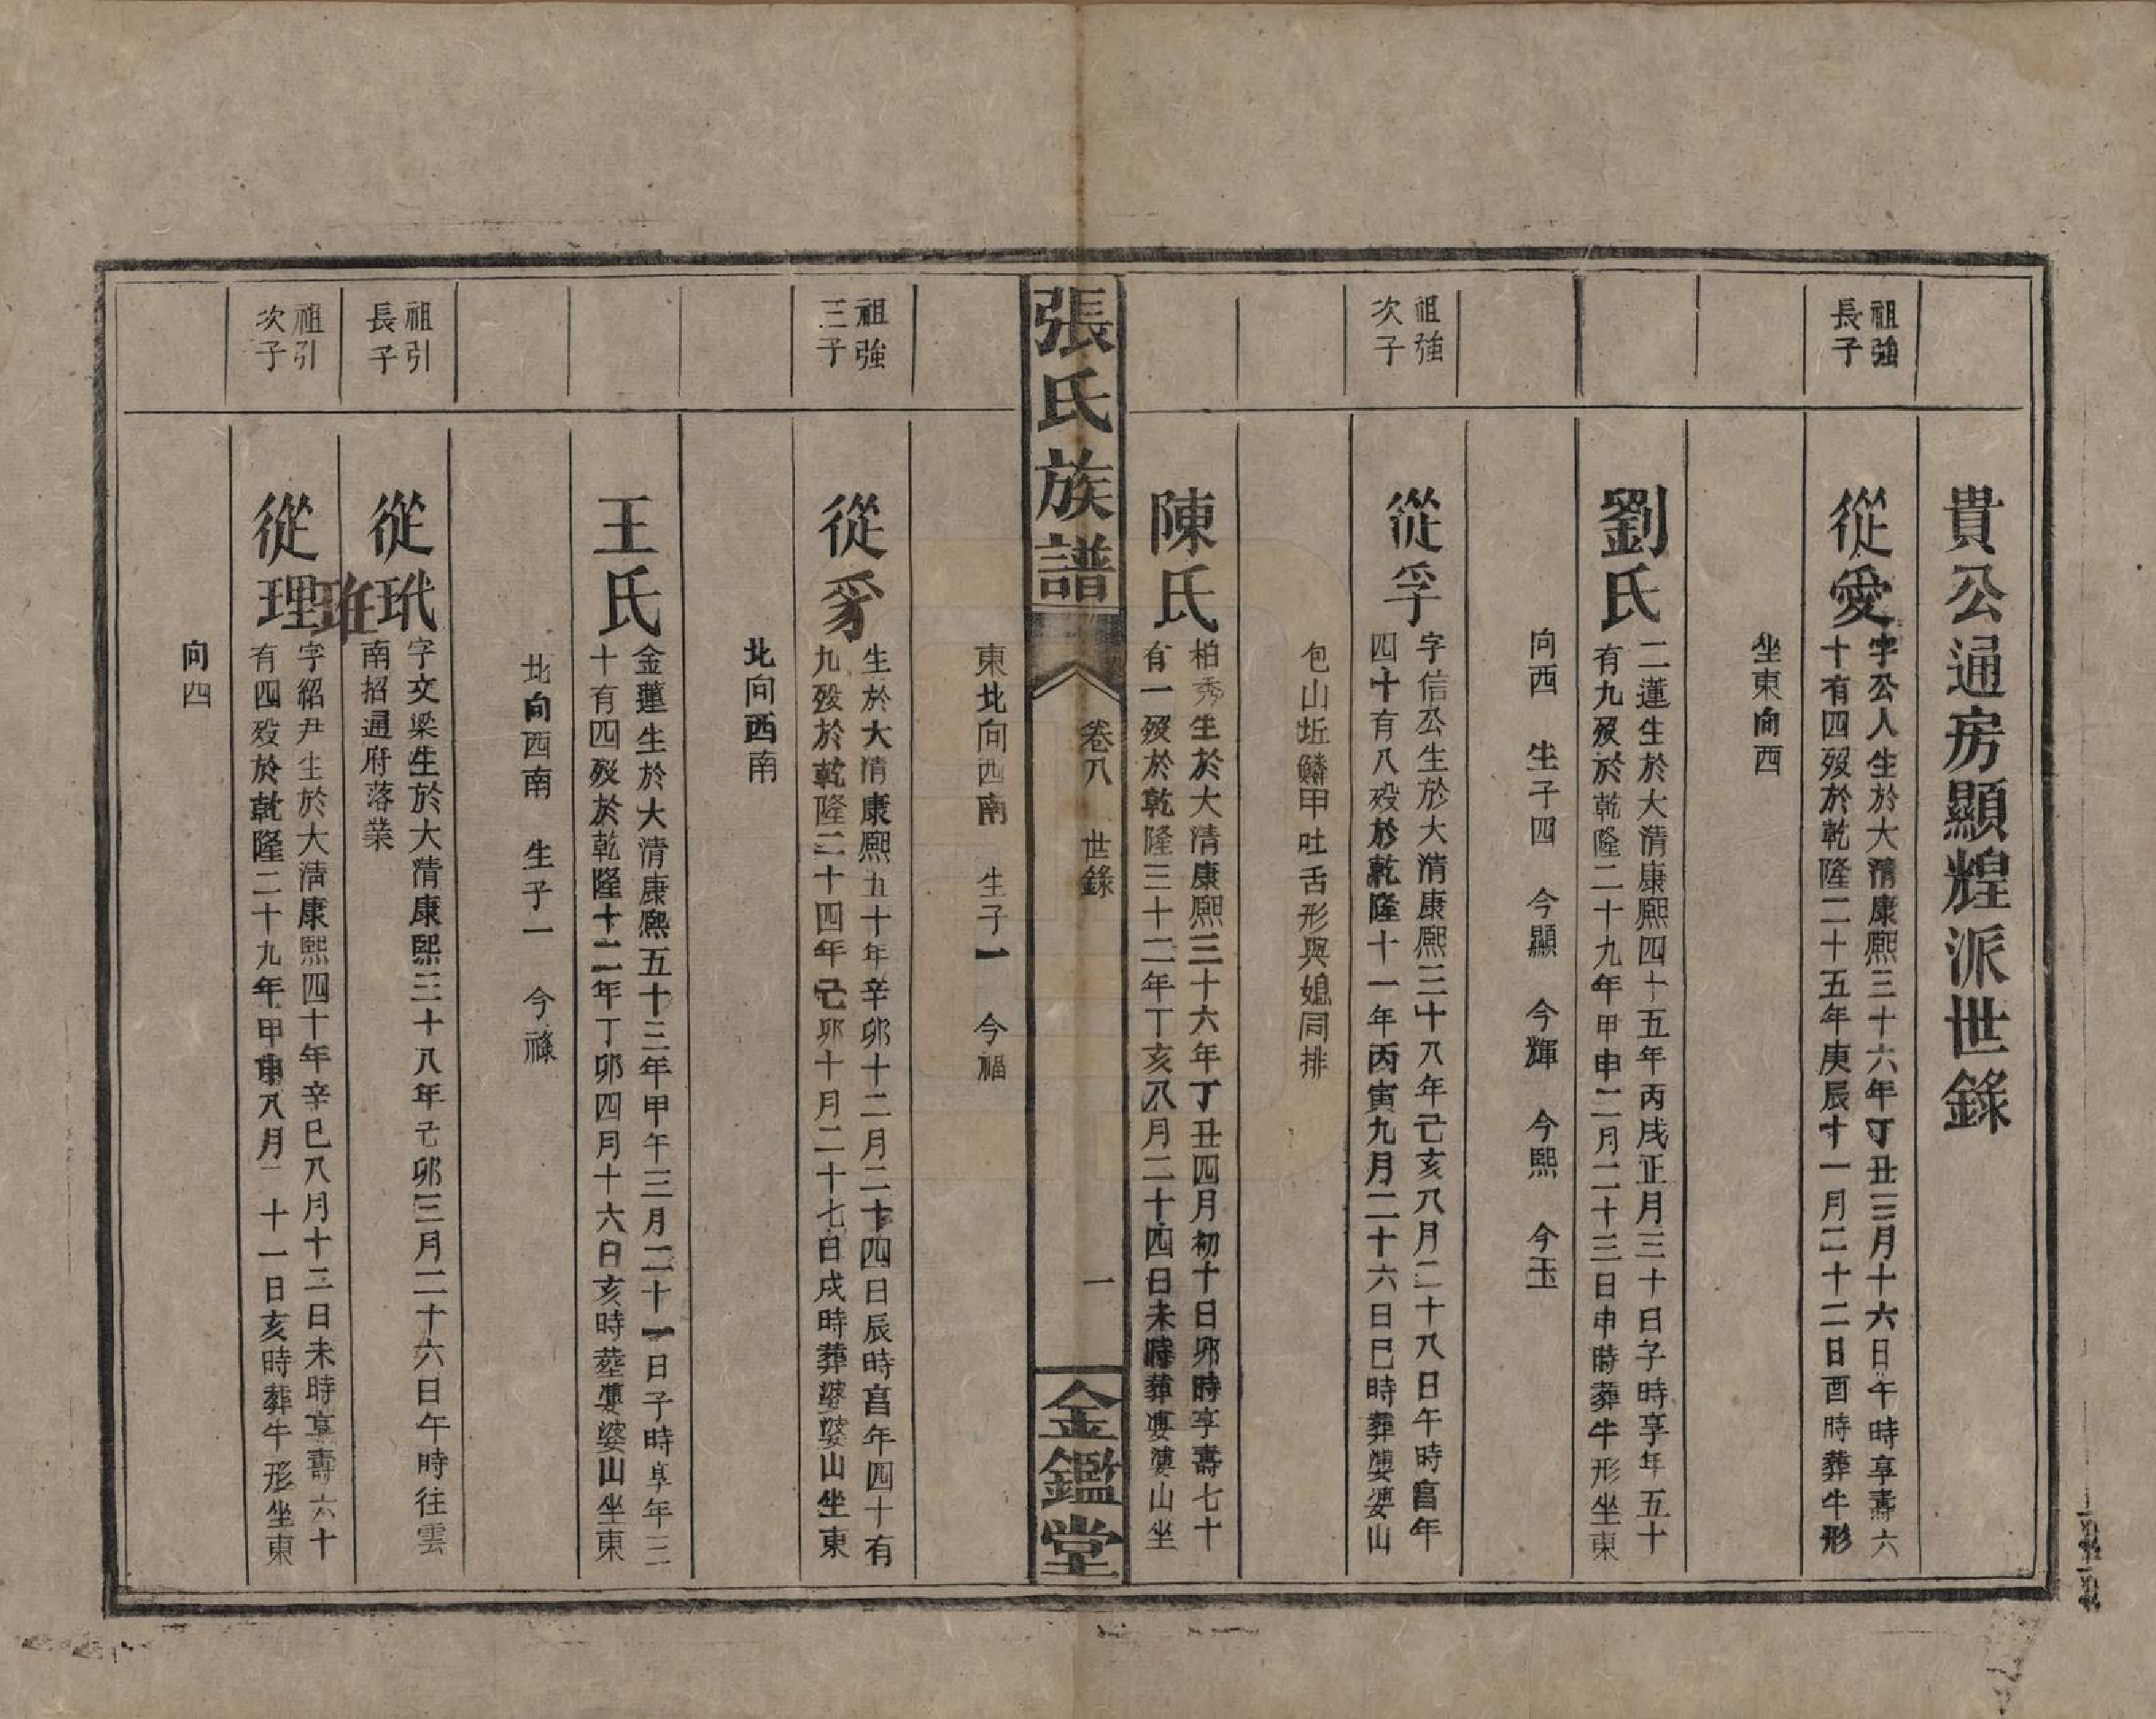 貴公通房顯煌派世錄
祖強
長子
從愛
字公人生於大清康熙三十六年丁丑三月十六日午時享壽六
十有四歿於乾隆二十五年庚辰十一月二十二日酉時葬牛形
坐東向西
劉氏
二蓮生於大清康熙四十五年丙戌正月三十日子時享年五十
有九歿於乾隆二十九年甲申二月二十三日申時葬牛形坐東
向西 生子四 今顯 今輝 今熙 今玉
祖強
次子
從孚
字信公生於大清康熙三十八年己亥八月二十八日午時享年
四十有八歿於乾隆十一年丙寅九月二十六日巳時葬婆婆山
包山坵鱗甲吐舌形與媳同排
陳氏
柏秀生於大清康熙三十六年丁丑四月初十日卯時享壽七十
有一歿於乾隆三十二年丁亥八月二十四日未時葬婆婆山坐
張氏族譜
卷八 世錄
一
金鑑堂
東北向西南 生子一 今福
祖強
三子
從豸
生於大清康熙五十年辛卯十二月二十四日辰時享年四十有
九歿於乾隆二十四年己卯十月二十七日戌時葬婆婆山坐東
北向西南
王氏
金蓮生於大清康熙五十三年甲午三月二十一日子時享年三
十有四歿於乾隆十二年丁卯四月十六日亥時葬婆婆山坐東
北向西南 生子一 今祿
祖引
長子
從玳
字文梁生於大清康熙三十八年己卯三月二十六日午時往雲
南招通府落業
祖引
次子
從理
字紹尹生於大清康熙四十年辛巳八月十二日未時享壽六十
有四歿於乾隆二十九年甲申八月二十一日亥時葬牛形坐東
向四